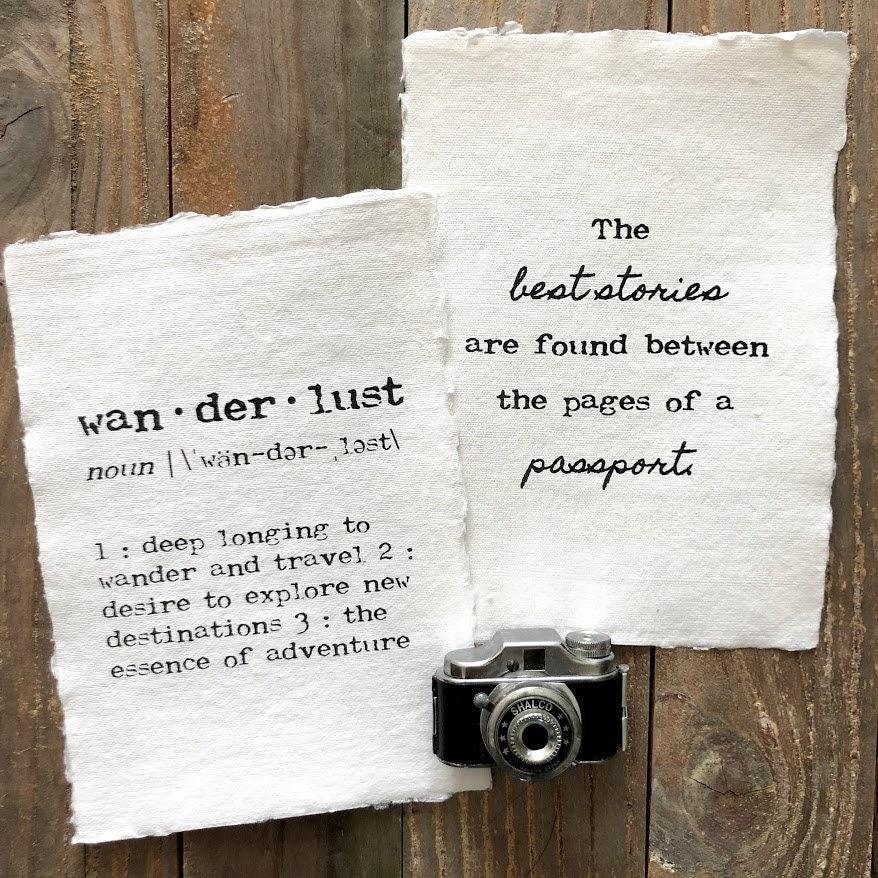 wan·der·lust
noun |\ˈwän-dər-ˌləst\
1 : deep longing to
wander and travel 2 :
desire to explore new
destinations 3 : the
essence of adventure
The
best stories
are found between
the pages of a
passport.
SHALCO